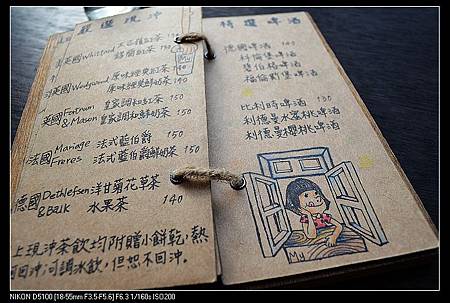 嚴選現沖
英國Whittard 大吉嶺紅茶
錫蘭紅茶 140
英國Wedgwood 原味經典紅茶
原味經典鮮奶茶 140
英國Fortnum 皇家調和紅茶 150
& Mason 皇家調和鮮奶茶 150
法國Mariage 法式藍伯爵 150
Freres 法式藍伯爵鮮奶茶 150
德國Dethlefsen洋甘菊花草茶
& Balk 水果茶 140
上現沖茶飲均附贈小餅乾,熱
可回沖,但恕不回沖。
特選啤酒
德國啤酒 140
科倫堡啤酒
比利時啤酒 130
利德曼水蜜桃啤酒
利德曼櫻桃啤酒
Mu
Mu
NIKON D5100 [18-55mm F3.5-F5.6] F6.3 1/160s ISO200